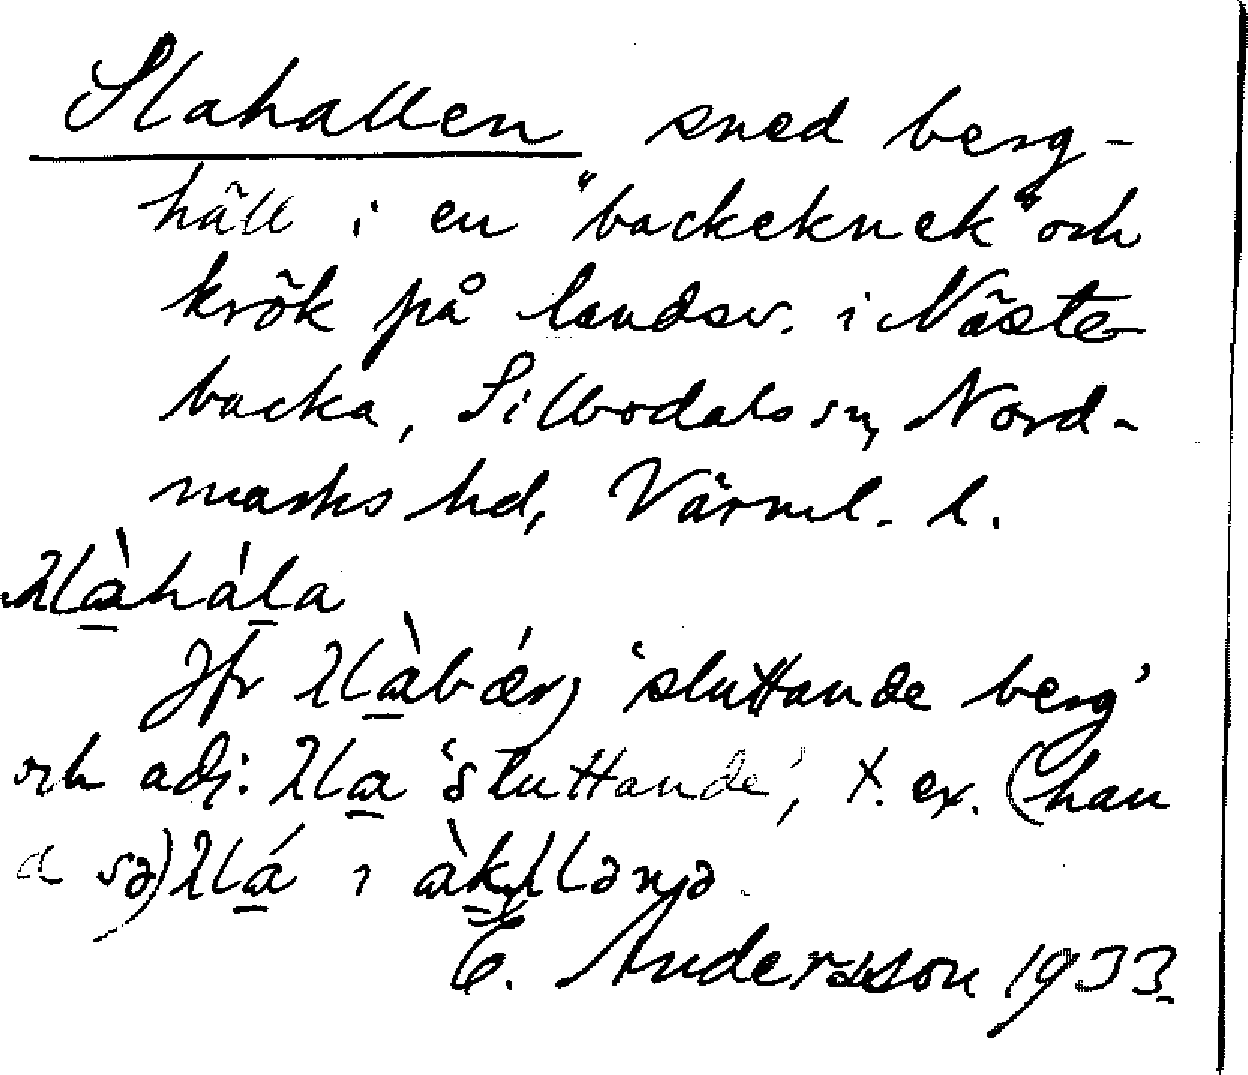 Slahallen sned berg-
häll i en "backeknek" och
krök på landsv. i Näste-
backa, Silbodals sn, Nord-
marks hd, Värml. l.
Jfr 'sluttande berg'
och adj. 'sluttande', t. ex. (han
E. Andersson 1933.